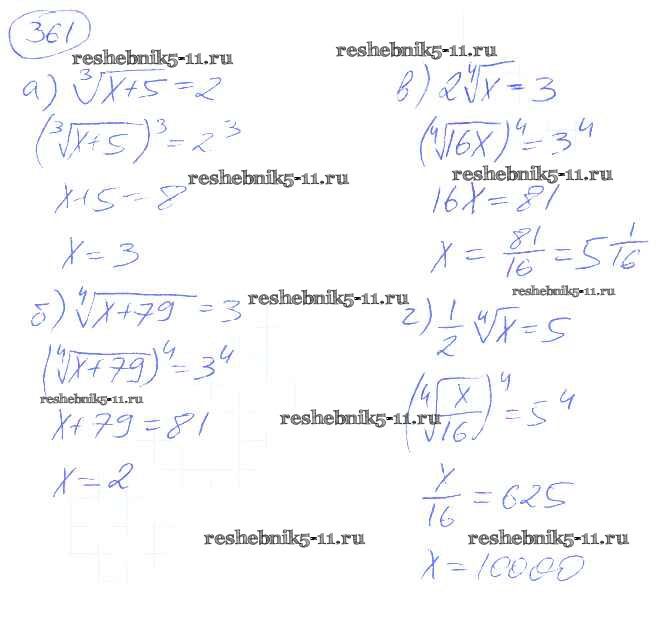 361
reshebnik5-11.ru
reshebnik5-11.ru
а) ∛(x+5) = 2
(∛(x+5))³ = 2³
reshebnik5-11.ru
x+5 = 8
x = 3
б) ∜(x+79) = 3
reshebnik5-11.ru
(∜(x+79))⁴ = 3⁴
reshebnik5-11.ru
x+79 = 81
x = 2
reshebnik5-11.ru
в) 2∜x = 3
(∜(16x))⁴ = 3⁴
reshebnik5-11.ru
16x = 81
x = 81/16 = 5 1/16
reshebnik5-11.ru
г) 1/2 ∜x = 5
(∜(x/16))⁴ = 5⁴
reshebnik5-11.ru
x/16 = 625
reshebnik5-11.ru
x = 10000